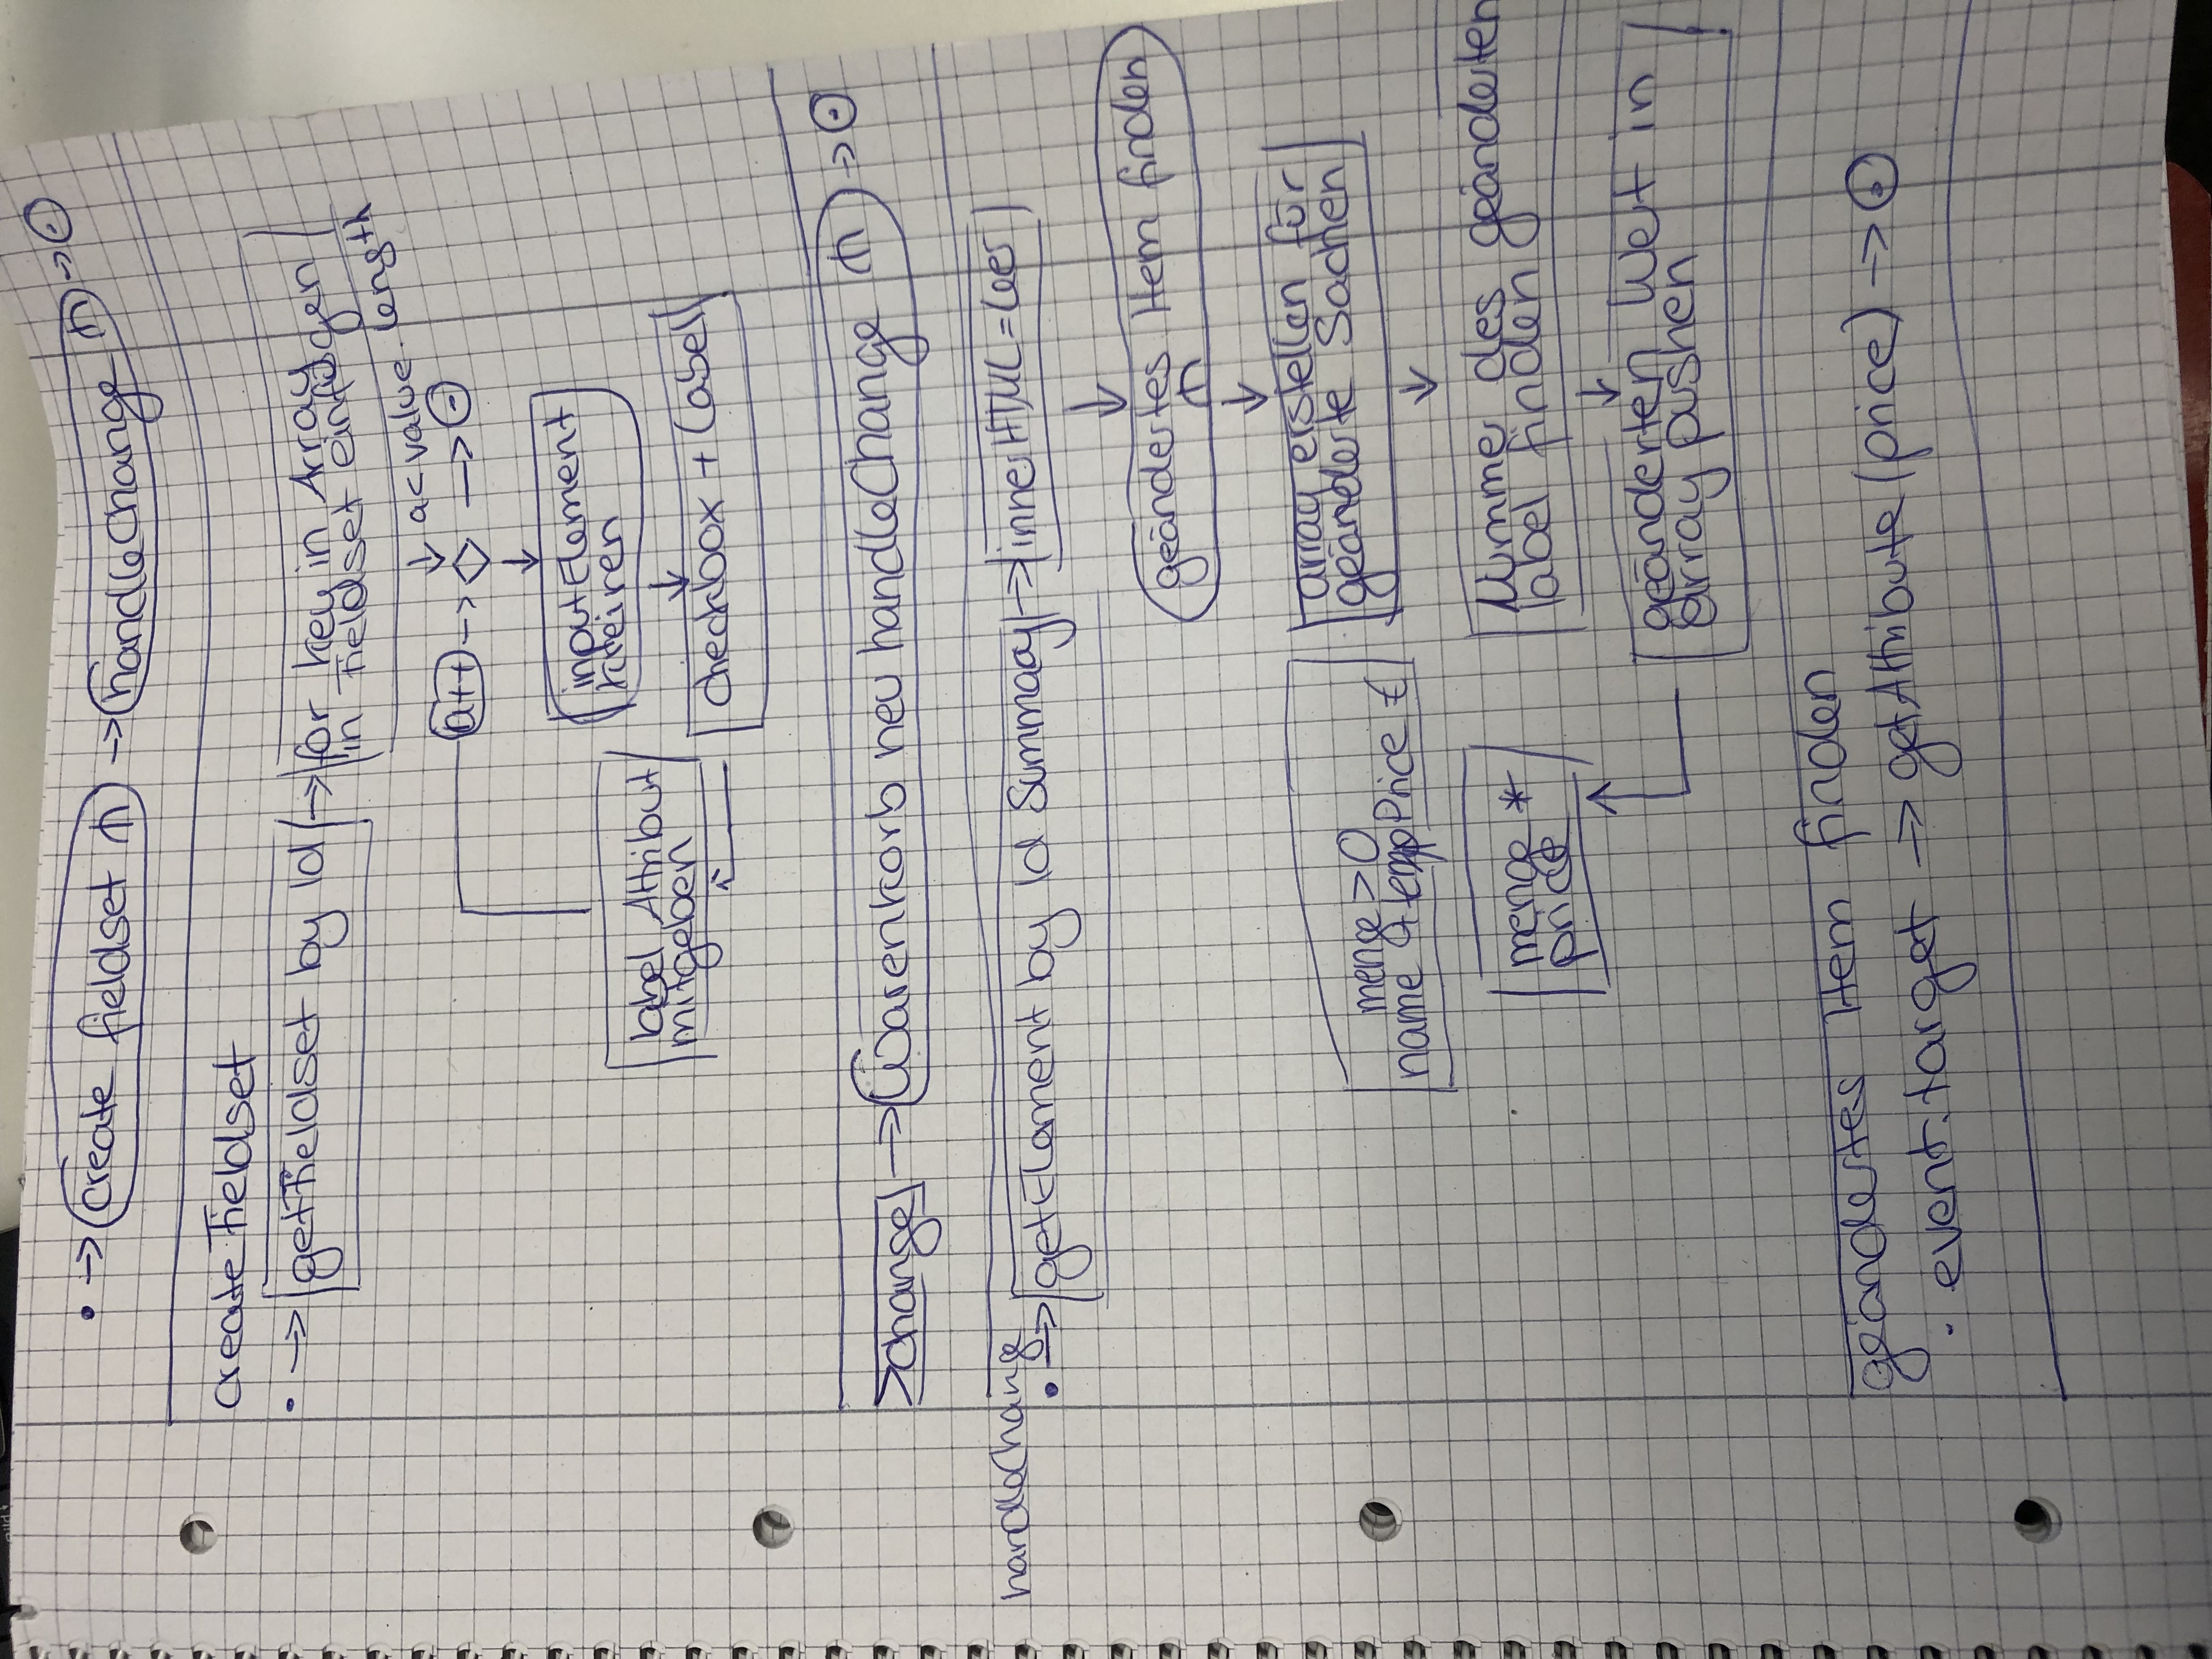 create fieldset
handleChange
createFieldset
getFieldset by Id
for key in Array
in Fieldset einfügen
a < value.length
a++
inputElement
kreiren
label Attribut
mitgeben
checkbox + Label
change
Warenkorb neu handleChange
handleChange
getElement by Id Summary
innerHTML = leer
geändertes Item finden
array erstellen für
geänderte Sachen
menge > 0
name + tempPrice €
Numme des geänderten
label finden
menge *
price
geänderten Wert in
array pushen
geändertes Item finden
event.target → getAttribute(price) →